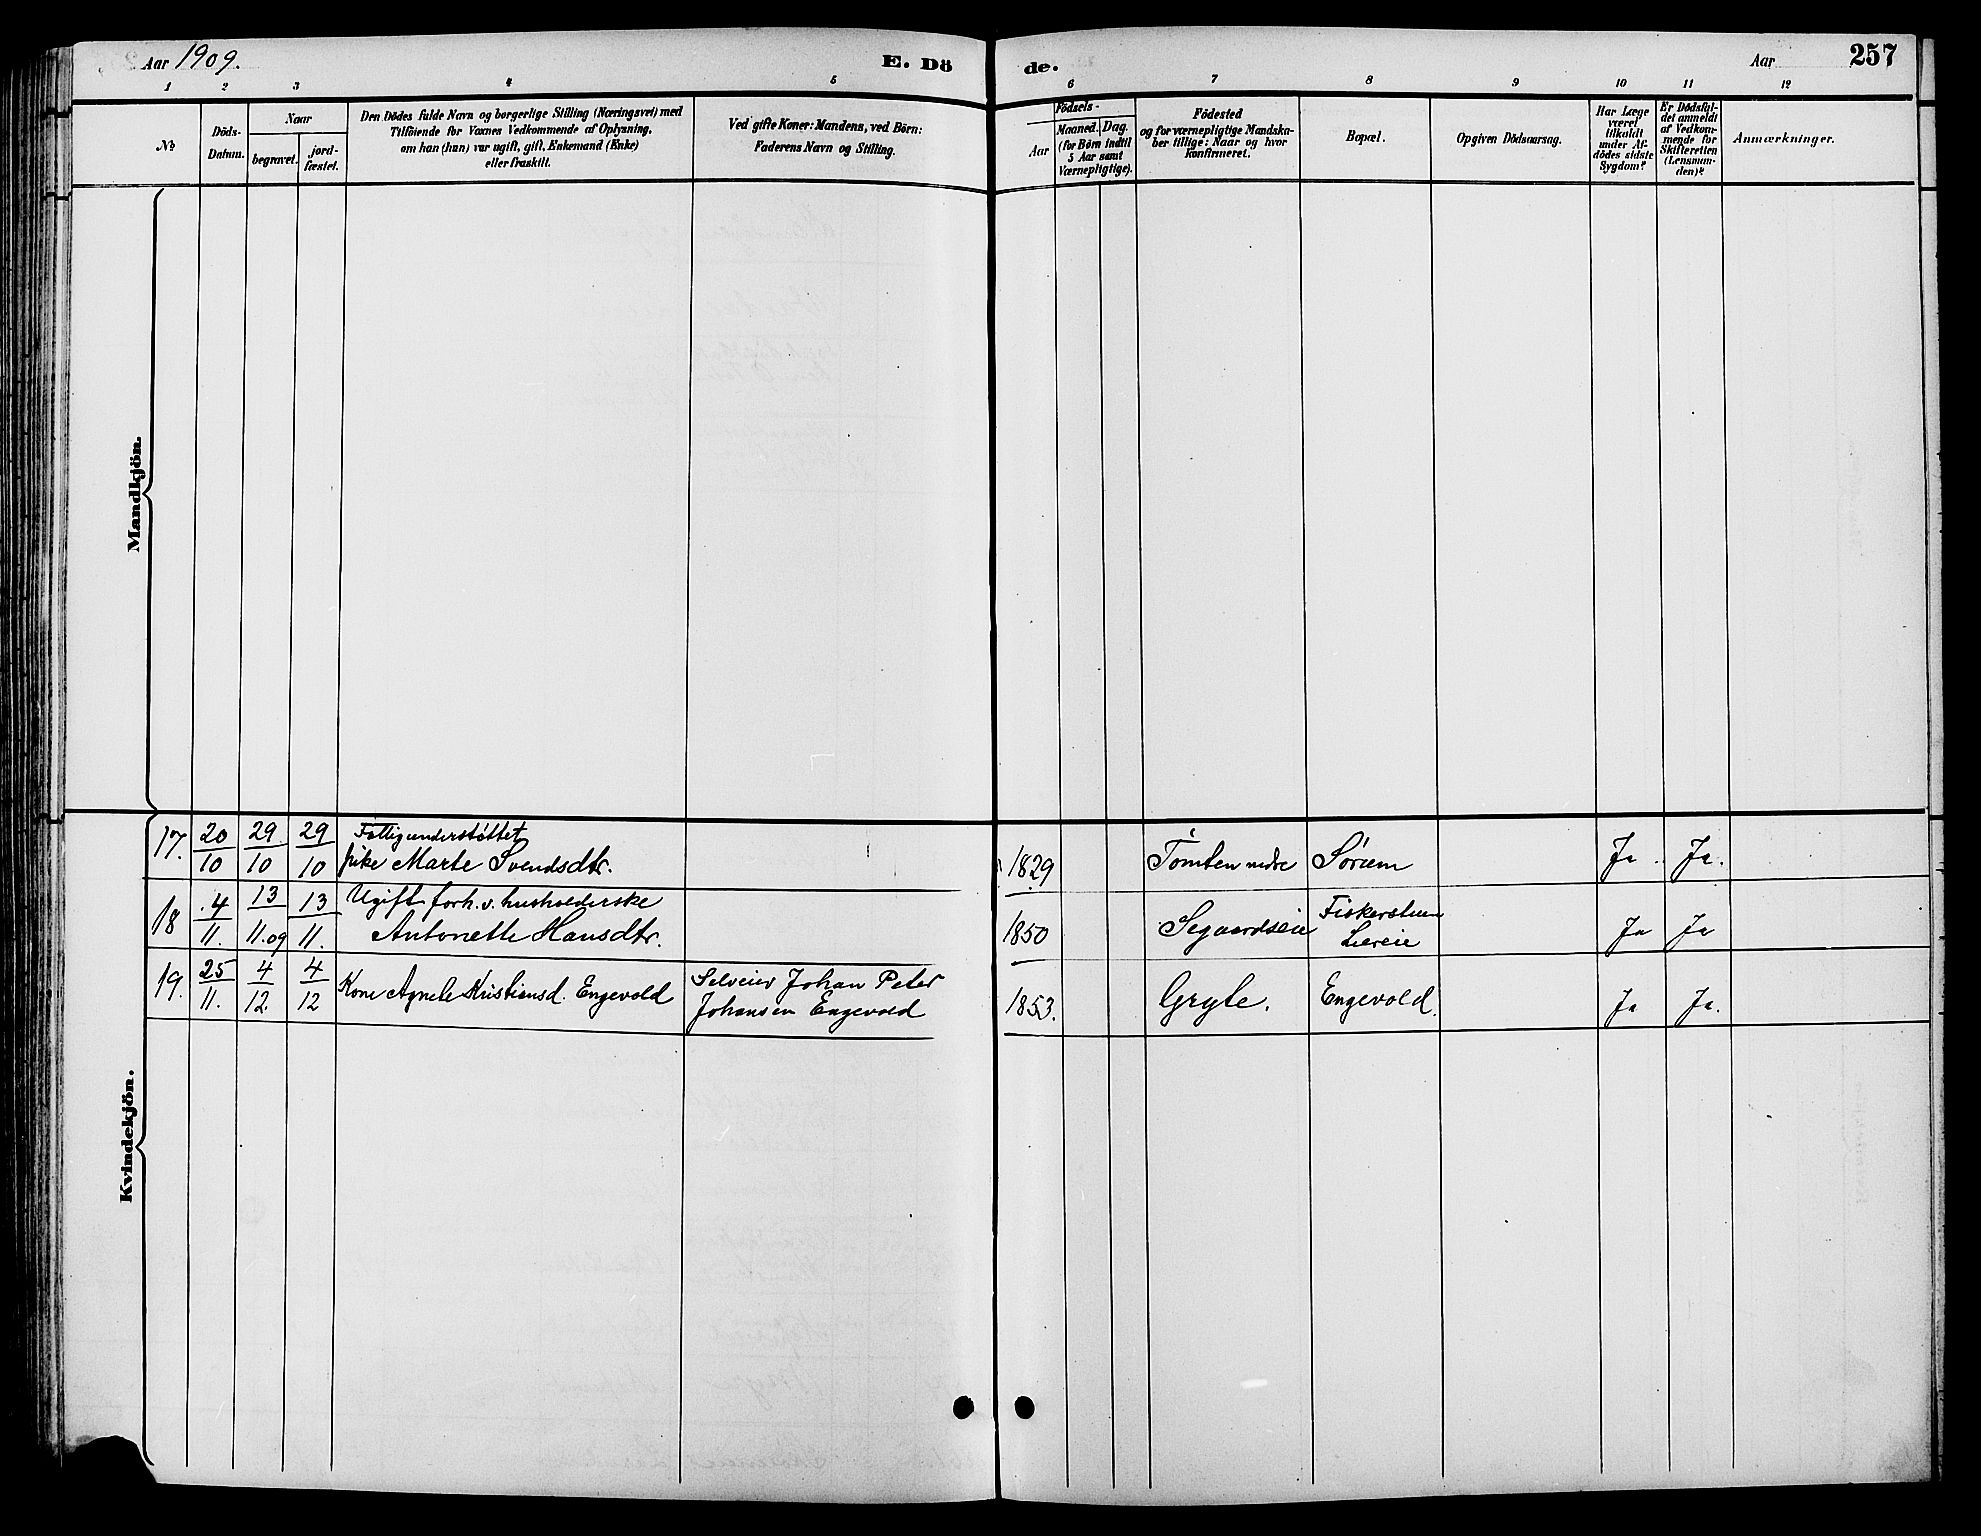 Aar 1909.
E. Dö
de.
Aar
257
1 2 3 4 5 6 7 8 9 10 11 12
№
Döds-
Datum.
Naar
begravet.
jord-
fæstet.
Den Dödes fulde Navn og borgerlige Stilling (Næringsvei) med
Tilföiende for Voxnes Vedkommende af Oplysning,
om han (hun) var ugift, gift, Enkemand (Enke)
eller fraskilt.
Ved gifte Koner: Mandens, ved Börn:
Faderens Navn og Stilling.
Födsels-
Aar
Maaned. Dag.
(for Börn indtil
5 Aar samt
Værnepligtige).
Födested
og for værnepligtige Mandska-
ber tillige: Naar og hvor
Konfirmeret.
Bopæl.
Opgiven Dödsaarsag.
Har Læge
været
tilkaldt
under Af-
dödes sidste
Sygdom?
Er Dödsfal-
det anmeldt
af Vedkom-
mende for
Skifteretten
(Lensman-
den)?
Anmærkninger.
Mandkjön.
Kvindekjön.
17. 20/10 29/10 29/10 Fattigunderstøttet
pike Marte Svendsdtr. 1829 Tomten nedre Sörum Ja. Ja.
18 4/11. 13/11.09 13/11. Ugift forh. v. husholderske
Antonette Hansdtr. 1850 Segaardseie Fiskerstuen
Liereie Ja Ja
19. 25/11. 4/12. 4/12 Kone Agnete Kristiansd. Engevold Selveier Johan Peter
Johansen Engevold 1853. Gryte. Engevold. Ja Ja.